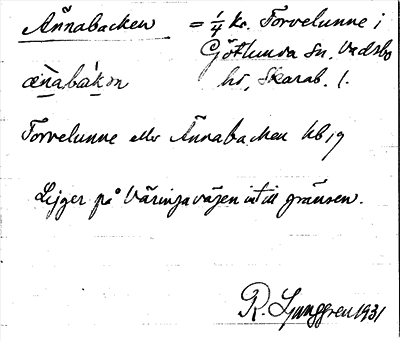 Ännabacken = 1/4 kr. Torvelunne i
Götlunda sn, Vadsbo
ænabákən hd, Skarab. l.
Torvelunne eller Ännabacken hb 19
Ligger på Väringavägen intill gränsen.
R. Ljunggren 1931